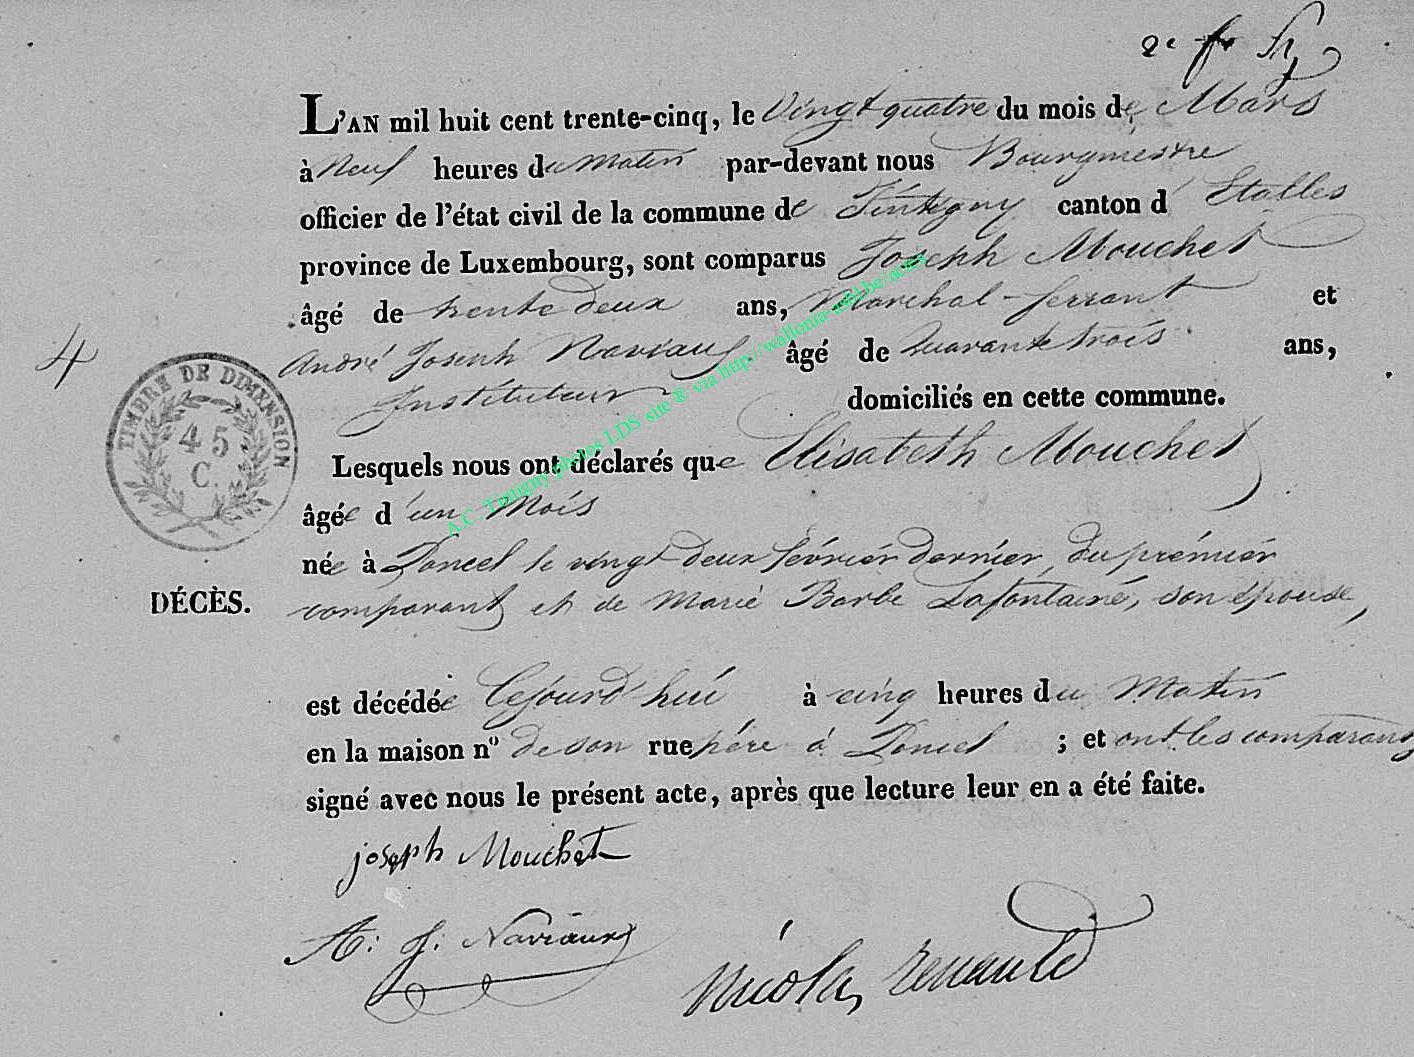 L'AN mil huit cent trente-cinq, le Vingt quatre du mois de Mars
à Neuf heures du Matin par-devant nous Bourgmestre
officier de l'état civil de la commune de Tintigny canton d' Etalles
province de Luxembourg, sont comparus Joseph Mouchet
âgé de trente deux ans, Marchal-ferrant et
4
André Joseph Naviaux âgé de Quarante trois ans,
Instituteur domiciliés en cette commune.
TIMBRE DE DIMENSION
45
C.
Lesquels nous ont déclarés que Elisabeth Mouchet
âgée d'un Mois
née à Poncel le vingt deux février dernier, du prémiér
DÉCÈS.
comparant et de Marie Barbe Lafontaine, son épouse,
est décédée Cejourd'hui à cinq heures du Matin
en la maison nº de son rue père à Poncel ; et ont les comparans
signé avec nous le présent acte, après que lecture leur en a été faite.
joseph Mouchet
A: J: Naviaux
Nicolas Renauld
A.C. Tintigny photos LDS site ® via http://wallonia-asbl.be/actes